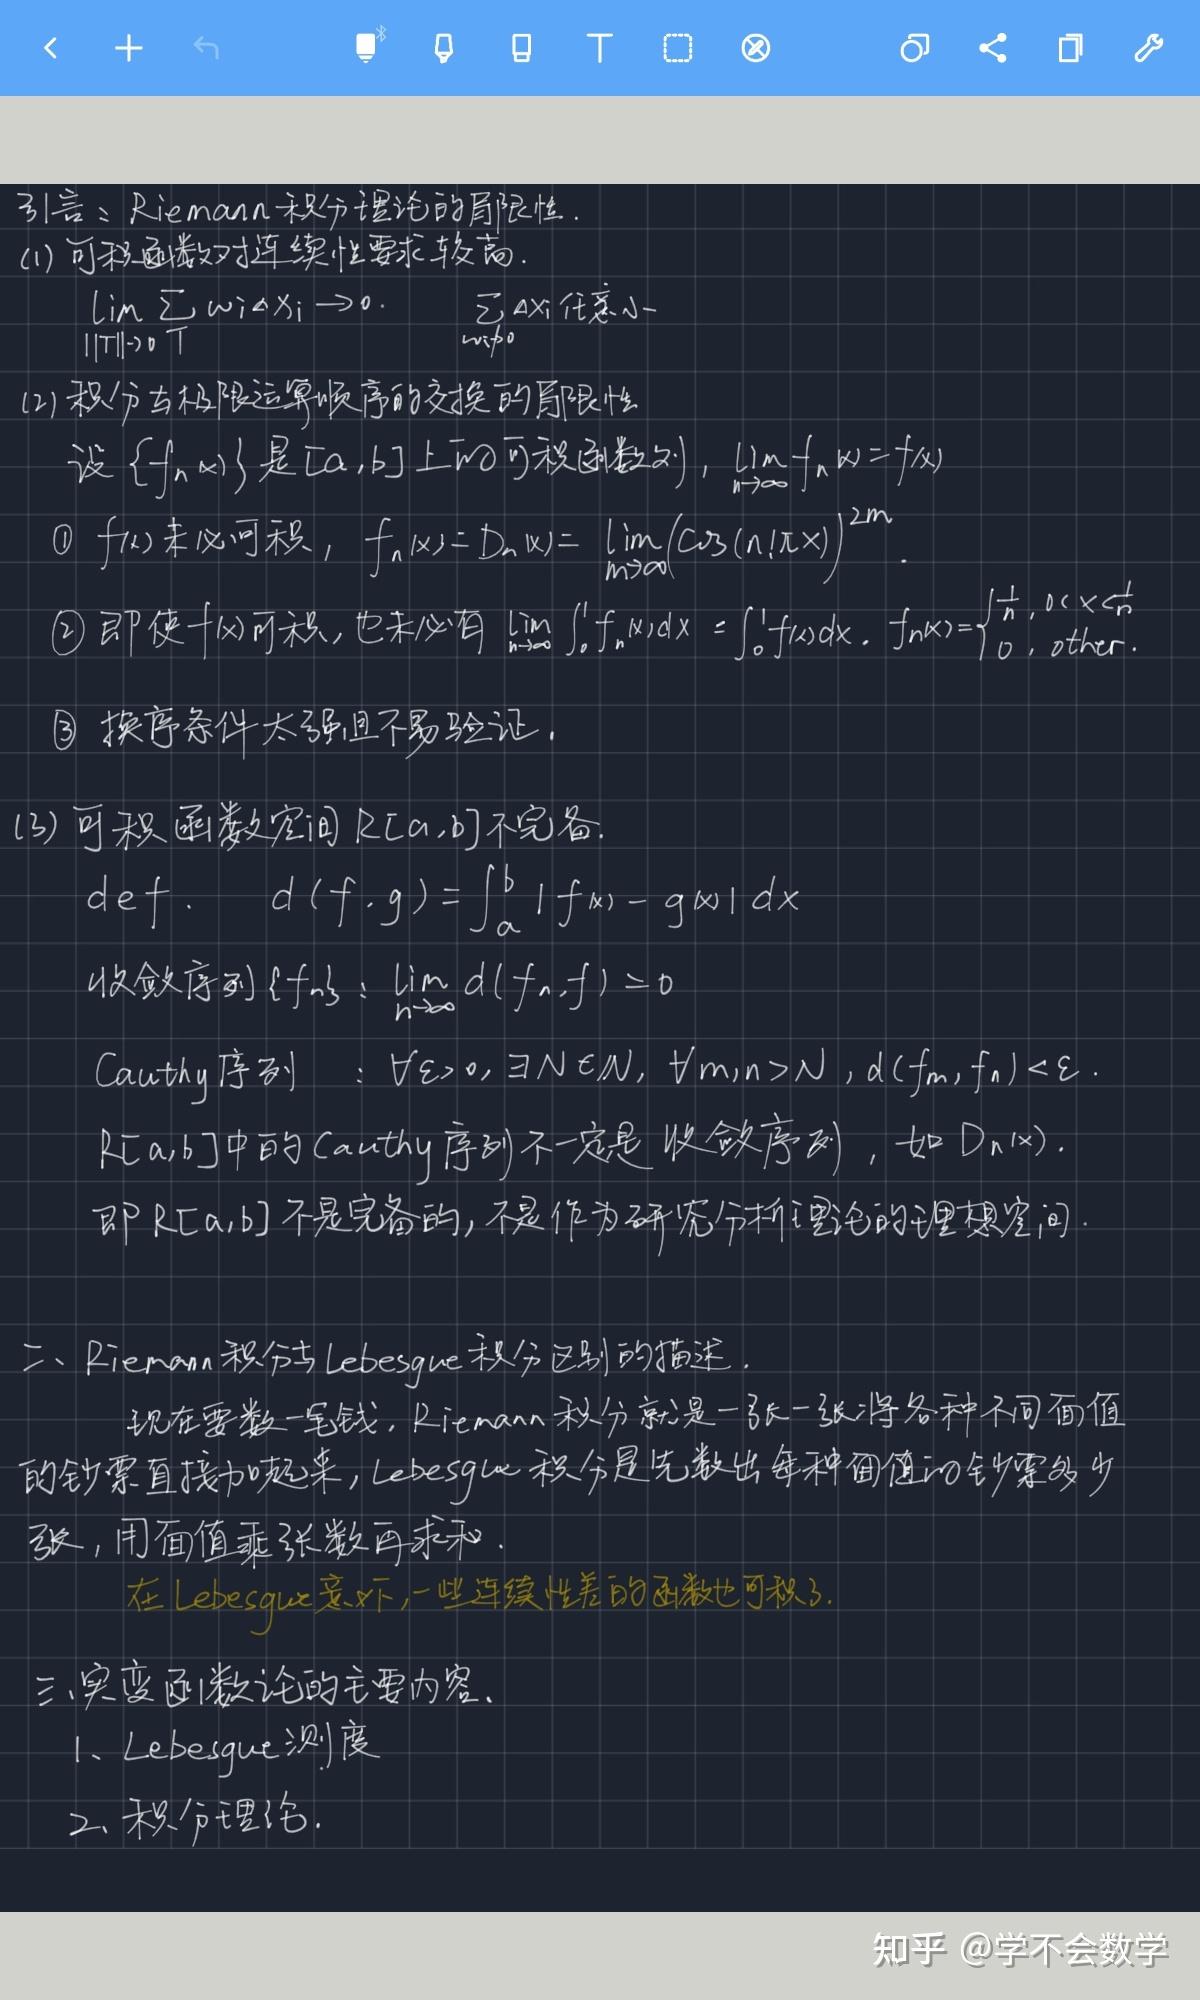 引言：Riemann 积分理论的局限性.
(1) 可积函数对连续性要求较高.
lim_{||T||→0} Σ_T ωiΔxi →0. Σ_{ωi≠0} Δxi 任意小
(2) 积分与极限运算顺序的交换的局限性
设 {fn(x)} 是 [a,b] 上的可积函数列, lim_{n→∞} fn(x) = f(x)
① f(x) 未必可积, fn(x) = Dn(x) = lim_{m→∞} (cos(n!πx))^{2m}.
② 即使 f(x) 可积, 也未必有 lim_{n→∞} ∫_0^1 fn(x)dx = ∫_0^1 f(x)dx. fn(x) = { 1/n, 0<x<1/n
0, other.
③ 换序条件太强且不易验证.
(3) 可积函数空间 R[a,b] 不完备.
def. d(f,g) = ∫_a^b |f(x) - g(x)| dx
收敛序列 {fn} : lim_{n→∞} d(fn,f) = 0
Cauthy 序列 : ∀ε>0, ∃N∈ℕ, ∀m,n>N, d(fm,fn)<ε.
R[a,b] 中的 Cauthy 序列不一定是收敛序列, 如 Dn(x).
即 R[a,b] 不是完备的, 不是作为研究分析理论的理想空间.
二、Riemann 积分与 Lebesgue 积分区别的描述.
现在要数一笔钱, Riemann 积分就是一张一张将各种不同面值
的钞票直接加起来, Lebesgue 积分是先数出每种面值的钞票多少
张, 用面值乘张数再求和.
在 Lebesgue 意义下, 一些连续性差的函数也可积了.
三、实变函数论的主要内容.
1、Lebesgue 测度
2、积分理论.
知乎 @学不会数学